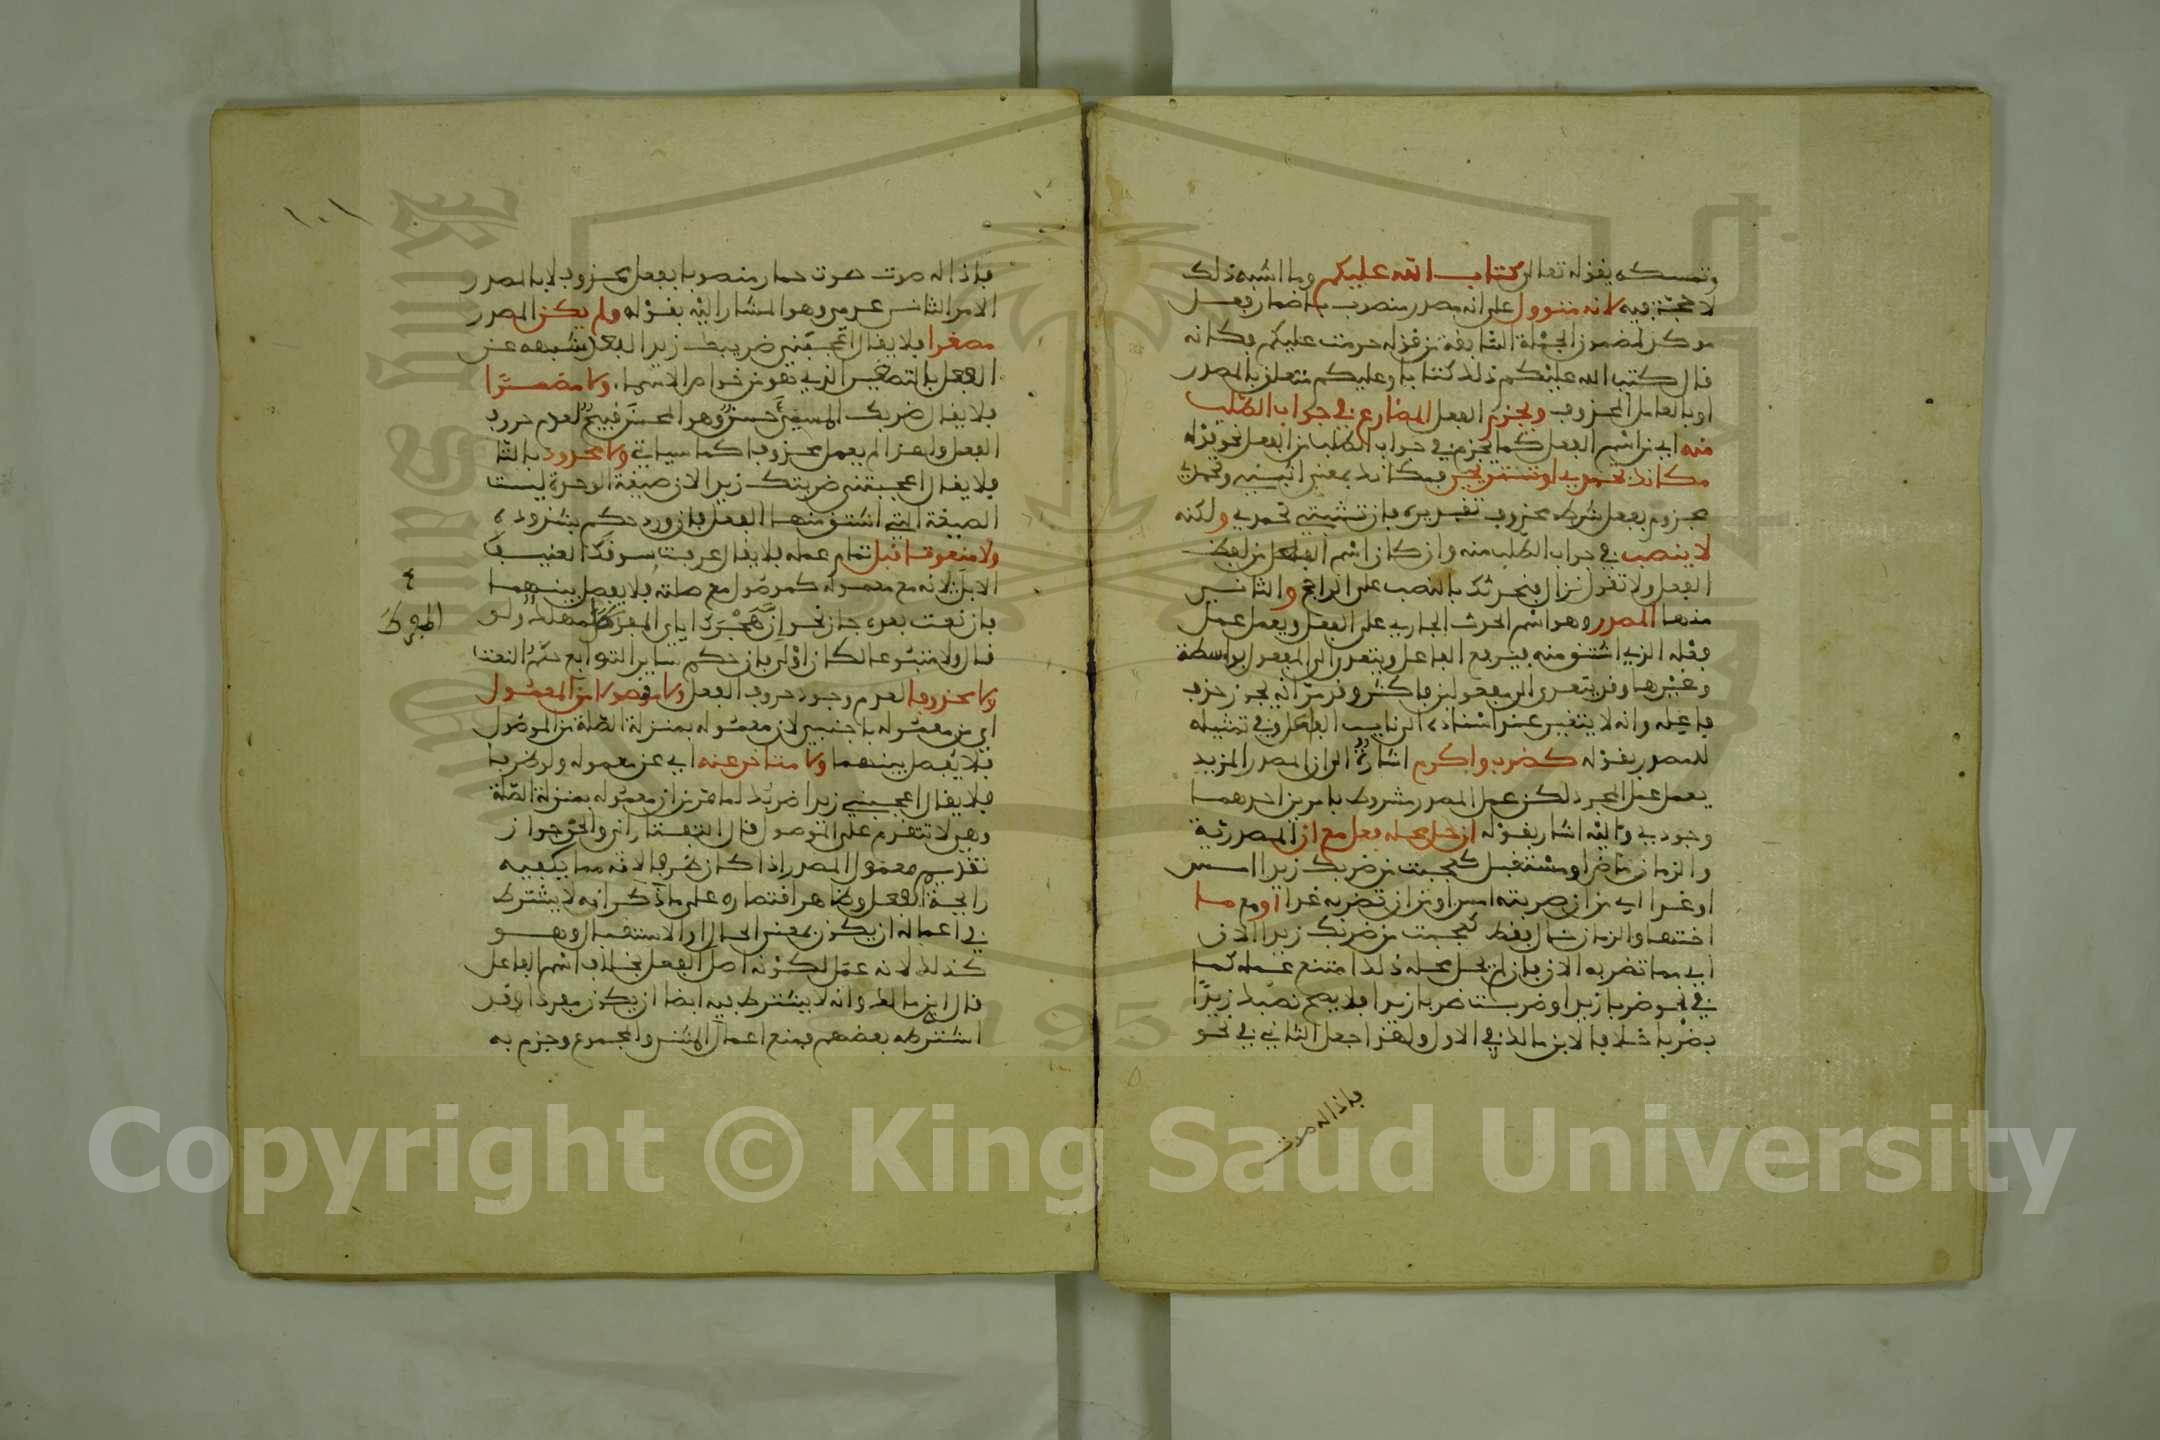 وتمسكه بقوله تعالى كتاب الله عليكم وما اشبه ذلك
لا حجة فيه لانه متوول على انه مصدر منصوب باضمار فعل
موكد لمضمون الجملة السابقة من قوله حرمت عليكم فكانه
قال كتب الله عليكم ذلك كتابا وعليكم متعلق بالمصدر
او بالعامل المحذوف ويجزم الفعل المضارع في جواب الطلب
منه اي من اسم الفعل كما يجزم في جواب الطلب من الفعل نحو قوله
مكانك تحمدي او تستريحي فمكانك بمعنى اثبتي وتحمدي
مجزوم بفعل شرط محذوف تقديره فان تثبتي تحمدي ولكنه
لا ينصب في جواب الطلب منه وان كان اسم الفعل من لفظ
الفعل ولا تقول نزال فنحدثك بالنصب على الراجح والثاني
منها المصدر وهو اسم الحدث الجاري على الفعل ويعمل عمل
فعله الذي اشتق منه فيرفع الفاعل ويتعدى الى المفعول بواسطة
وغيرها وقد يتعدى الى مفعولين فاكثر وقد مر انه يجوز حذف
فاعله وانه لا يتغير عند اسناده الى نايب الفاعل وفي تمثيله
للمصدر بقوله كضرب واكرم اشارة الى ان المصدر المزيد
يعمل عمل المجرد لكن عمل المصدر مشروط بامرين احدهما
وجودي واليه اشار بقوله ان حل محله فعل مع ان المصدرية
والزمان ماض او مستقبل كعجبت من ضربك زيدا امس
او غدا اي من ان ضربته امس او من ان تضربه غدا او مع ما
اختها والزمان حال فقط كعجبت من ضربك زيدا الان
اي مما تضربه الان فان لم يحل محله ذلك امتنع عمله كما
في نحو ضربا زيدا وضربت ضربا زيدا فلا يصح نصب زيدا
بضربا خلافا لابن مالك في الاول ولهذا جعل الثاني في نحو
فاذا له صوت
١٠١
فاذا له صوت صوت حمار منصوبا بفعل محذوف لا بالمصدر
الامر الثاني عدمي وهو المشار اليه بقوله ولم يكن المصدر
مصغرا فلا يقال اعجبني ضريبك زيدا لبعد شبهه عن
الفعل بالتصغير الذي هو من خواص الاسماء ولا مضمرا
فلا يقال ضربك المسيئ حسن وهو المحسن قبيح لعدم حروف
الفعل ولهذا لم يعمل محذوفا كما سياتي ولا محدودا بالتا
فلا يقال اعجبتني ضربتك زيدا لان صيغة الوحدة ليست
الصيغة التي اشتق منها الفعل فان ورد حكم بشذوذه
ولا منعوتا قبل تمام عمله فلا يقال عرفت سوقك العنيف
الابل لانه مع معموله كموصول مع صلته فلا يفصل بينهما
فان نعت بعده جاز نحو ان هجرك اياي المفرط مهلك ولو
المفرط
قال ولا متبوعا لكان اولى فان حكم ساير التوابع حكم النعت
ولا محذوفا لعدم وجود حروف الفعل ولا مفصولا من المعمول
اي من معموله باجنبي لان معموله بمنزلة الصلة من الموصول
فلا يفصل بينهما ولا متاخرا عنه اي عن معموله ولو ظرفا
فلا يقال اعجبني زيدا ضربك لما مر من ان معموله بمنزلة الصلة
وهي لا تتقدم على الموصول قال التفتازاني والحق جواز
تقديم معمول المصدر اذا كان ظرفا لانه مما يكفيه
رايحة الفعل وظاهر اقتصاره على ما ذكر انه لا يشترط
في اعماله ان يكون بمعنى الحال او الاستقبال وهو
كذلك لانه عمل لكونه اصل الفعل بخلاف اسم الفاعل
قال ابن مالك وانه لا يشترط فيه ايضا ان يكون مفردا وقد
اشترطه بعضهم فمنع اعمال المثنى والمجموع وجزم به
Copyright © King Saud University
King Saud University
1957